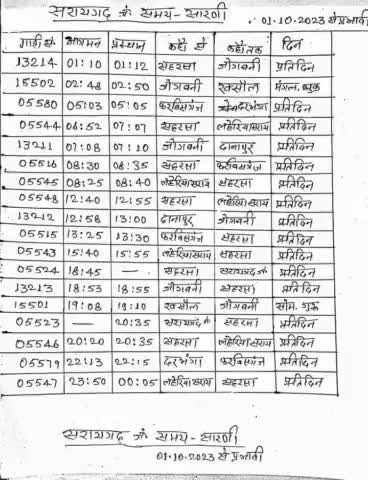 सरायगढ़ जं० समय-सारणी
01.10.2023 से प्रभावी
गाड़ी सं. आगमन प्रस्थान कहाँ से कहाँ तक दिन
13214 01:10 01:12 सहरसा जोगबनी प्रतिदिन
15502 02:48 02:50 जोगबनी रक्सौल मंगल,
05580 05:03 05:05 फारबिसगंज दरभंगा प्रतिदिन
05544 06:52 07:07 सहरसा लहेरियासराय प्रतिदिन
13211 07:08 07:10 जोगबनी दानापुर प्रतिदिन
05516 08:30 08:35 सहरसा फरबिसगंज प्रतिदिन
05545 08:25 08:40 लहेरियासराय सहरसा प्रतिदिन
05548 12:40 12:55 सहरसा लहेरियासराय प्रतिदिन
13212 12:58 13:00 दानापुर जोगबनी प्रतिदिन
05515 13:25 13:30 फरबिसगंज सहरसा प्रतिदिन
05543 15:40 15:55 लहेरियासराय सहरसा प्रतिदिन
05524 18:45 — सहरसा सरायगढ़ जं० प्रतिदिन
13213 18:53 18:55 जोगबनी सहरसा प्रतिदिन
15501 19:08 19:10 रक्सौल जोगबनी सोम. गुरू
05523 — 20:35 सरायगढ़ जं० सहरसा प्रतिदिन
05546 20:20 20:35 सहरसा लहेरियासराय प्रतिदिन
05579 22:13 22:15 दरभंगा फरबिसगंज प्रतिदिन
05547 23:50 00:05 लहेरियासराय सहरसा प्रतिदिन
सरायगढ़ जं० समय-सारणी
01.10.2023 से प्रभावी